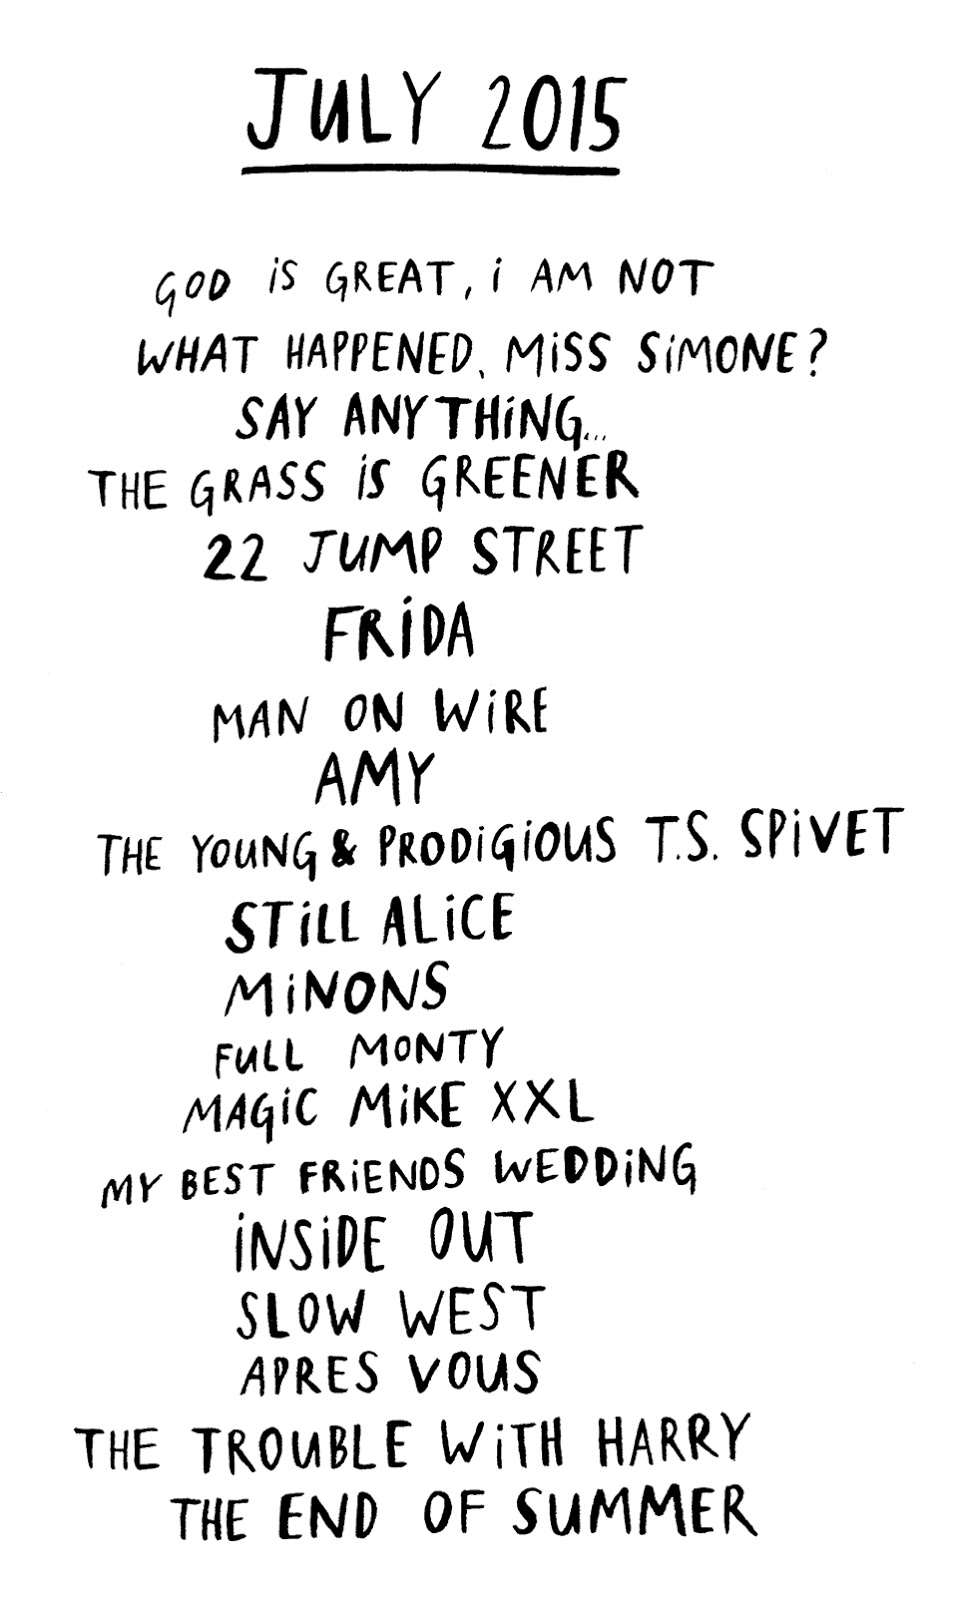 JULY 2015
GOD iS GREAT, i AM NOT
WHAT HAPPENED, MiSS SiMONE?
SAY ANYTHiNG...
THE GRASS iS GREENER
22 JUMP STREET
FRiDA
MAN ON WiRE
AMY
THE YOUNG & PRODiGiOUS T.S. SPiVET
STiLL ALiCE
MiNONS
FULL MONTY
MAGiC MiKE XXL
MY BEST FRiENDS WEDDiNG
iNSiDE OUT
SLOW WEST
APRES VOUS
THE TROUBLE WiTH HARRY
THE END OF SUMMER